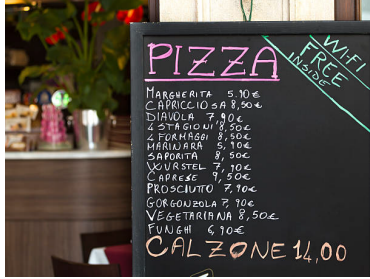 PIZZA
WI-FI
FREE
INSIDE
MARGHERITA 5.90€
CAPRICCIOSA 8,50€
DIAVOLA 7,90€
4 STAGIONI 8,50€
4 FORMAGGI 8,50€
MARINARA 5,90€
SAPORITA 8,50€
WURSTEL 7,90€
CAPRESE 9,50€
PROSCIUTTO 7,90€
GORGONZOLA 7,90€
VEGETARIANA 8,50€
FUNGHI 6,90€
CALZONE 14,00